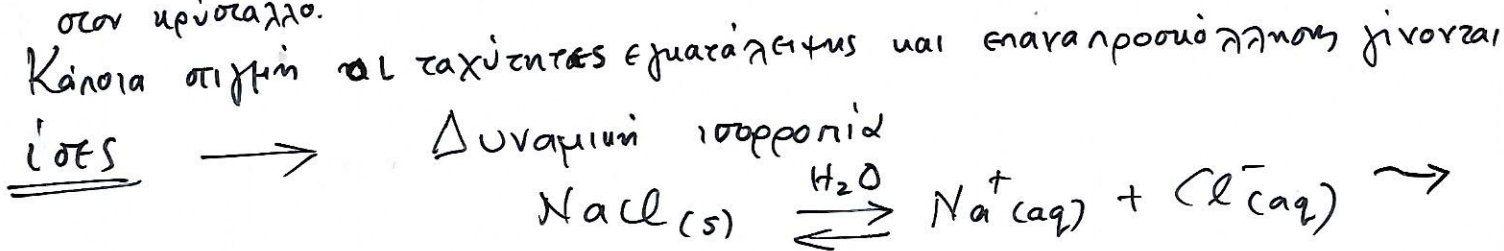 στον κρύσταλλο.
Κάποια στιγμή οι ταχύτητες εγκατάλειψης και επαναπροσκόλλησης γίνονται
ίσες → Δυναμική ισορροπία
NaCl(s) ⇌ H₂O Na⁺(aq) + Cl⁻(aq) →